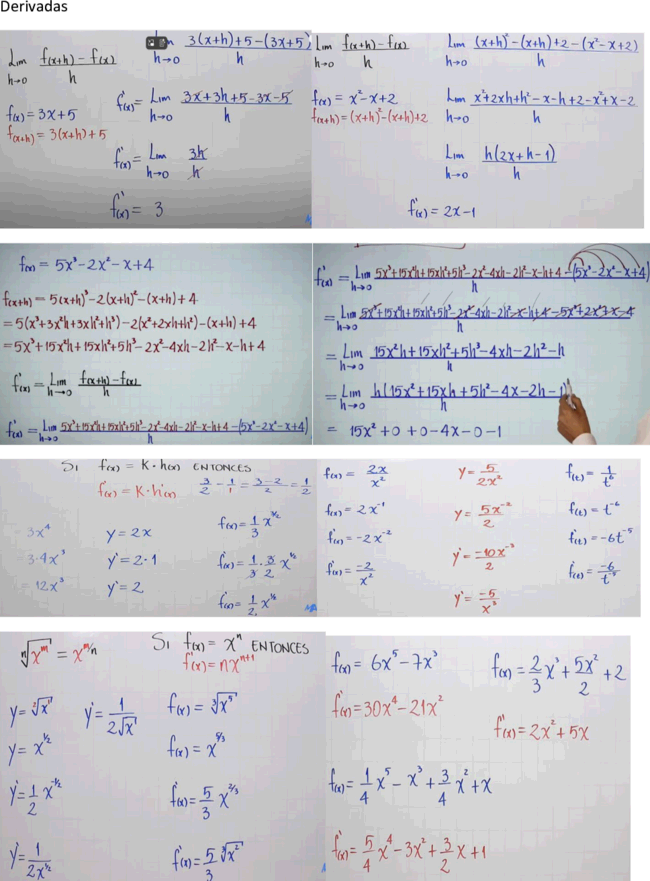 Derivadas
Lim f(x+h) - f(x) / h
h→0
f(x) = 3x+5
f(x+h) = 3(x+h)+5
3(x+h)+5-(3x+5) / h
h→0
f'(x) = Lim 3x+3h+5-3x-5 / h
h→0
f'(x) = Lim 3h / h
h→0
f'(x) = 3
Lim f(x+h) - f(x) / h
h→0
f(x) = x²-x+2
f(x+h) = (x+h)²-(x+h)+2
Lim (x+h)²-(x+h)+2-(x²-x+2) / h
h→0
Lim x²+2xh+h²-x-h+2-x²+x-2 / h
h→0
Lim h(2x+h-1) / h
h→0
f'(x) = 2x-1
f(x) = 5x³-2x²-x+4
f(x+h) = 5(x+h)³-2(x+h)²-(x+h)+4
= 5(x³+3x²h+3xh²+h³)-2(x²+2xh+h²)-(x+h)+4
= 5x³+15x²h+15xh²+5h³-2x²-4xh-2h²-x-h+4
f'(x) = Lim f(x+h)-f(x) / h
h→0
f'(x) = Lim 5x³+15x²h+15xh²+5h³-2x²-4xh-2h²-x-h+4-(5x³-2x²-x+4) / h
h→0
f'(x) = Lim 5x³+15x²h+15xh²+5h³-2x²-4xh-2h²-x-h+4-(5x³-2x²-x+4) / h
h→0
= Lim 5x³+15x²h+15xh²+5h³-2x²-4xh-2h²-x-h+4-5x³+2x²+x-4 / h
h→0
= Lim 15x²h+15xh²+5h³-4xh-2h²-h / h
h→0
= Lim h(15x²+15xh+5h²-4x-2h-1) / h
h→0
= 15x²+0+0-4x-0-1
Si f(x) = K·h(x) ENTONCES
f'(x) = K·h'(x)
3/2 - 1/1 = 3-2/2 = 1/2
3x⁴
3·4x³
= 12x³
y = 2x
y' = 2·1
y' = 2
f(x) = 1/3 x^3/2
f'(x) = 1/3 · 3/2 x^1/2
f'(x) = 1/2 x^1/2
f(x) = 2x / x²
f(x) = 2x⁻¹
f'(x) = -2x⁻²
f'(x) = -2 / x²
y = 5 / 2x²
y = 5x⁻² / 2
y' = -10x⁻³ / 2
y' = -5 / x³
f(t) = 1 / t⁶
f(t) = t⁻⁶
f'(t) = -6t⁻⁵
f'(t) = -6 / t⁻⁵
ⁿ√x^m = x^m/n
Si f(x) = xⁿ ENTONCES
f'(x) = nx^n+1
y = ²√x¹
y = x^1/2
y' = 1/2 x^-1/2
y' = 1 / 2x^1/2
y' = 1 / 2√x
f(x) = ³√x⁵
f(x) = x^5/3
f'(x) = 5/3 x^2/3
f'(x) = 5/3 ³√x²
f(x) = 6x⁵-7x³
f'(x) = 30x⁴-21x²
f(x) = 2/3 x³ + 5x²/2 + 2
f'(x) = 2x²+5x
f(x) = 1/4 x⁵ - x³ + 3/4 x² + x
f'(x) = 5/4 x⁴ - 3x² + 3/2 x + 1